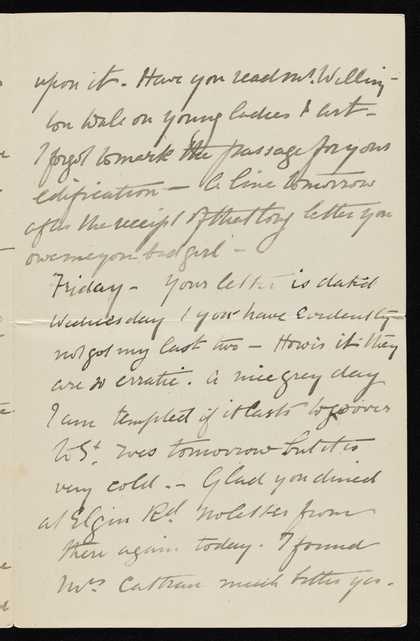 upon it. Have you read Mr. Welling-
ton Wale on young ladies & art –
I forgot to mark the passage for your
edification – A line tomorrow
after the receipt of that long letter you
owe me you bad girl –
Friday – Your letter is dated
Wednesday & you have evidently
not got my last two – How is it they
are so erratic. A nice grey day
I am tempted if it lasts to go over
to St. Ives tomorrow but it is
very cold. – Glad you dined
at Elgin Rd. No letter from
there again today. I found
Mrs much better yes.